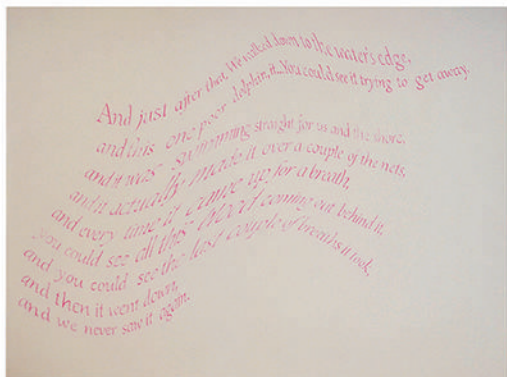 And just after that, We walked down to the water's edge,
and this one poor dolphin, it...You could see it trying to get away.
and it was swimming straight for us and the shore.
and it actually made it over a couple of the nets,
and every time it came up for a breath,
you could see all this blood coming out behind it,
and you could see the last couple of breaths it took,
and then it went down,
and we never saw it again.